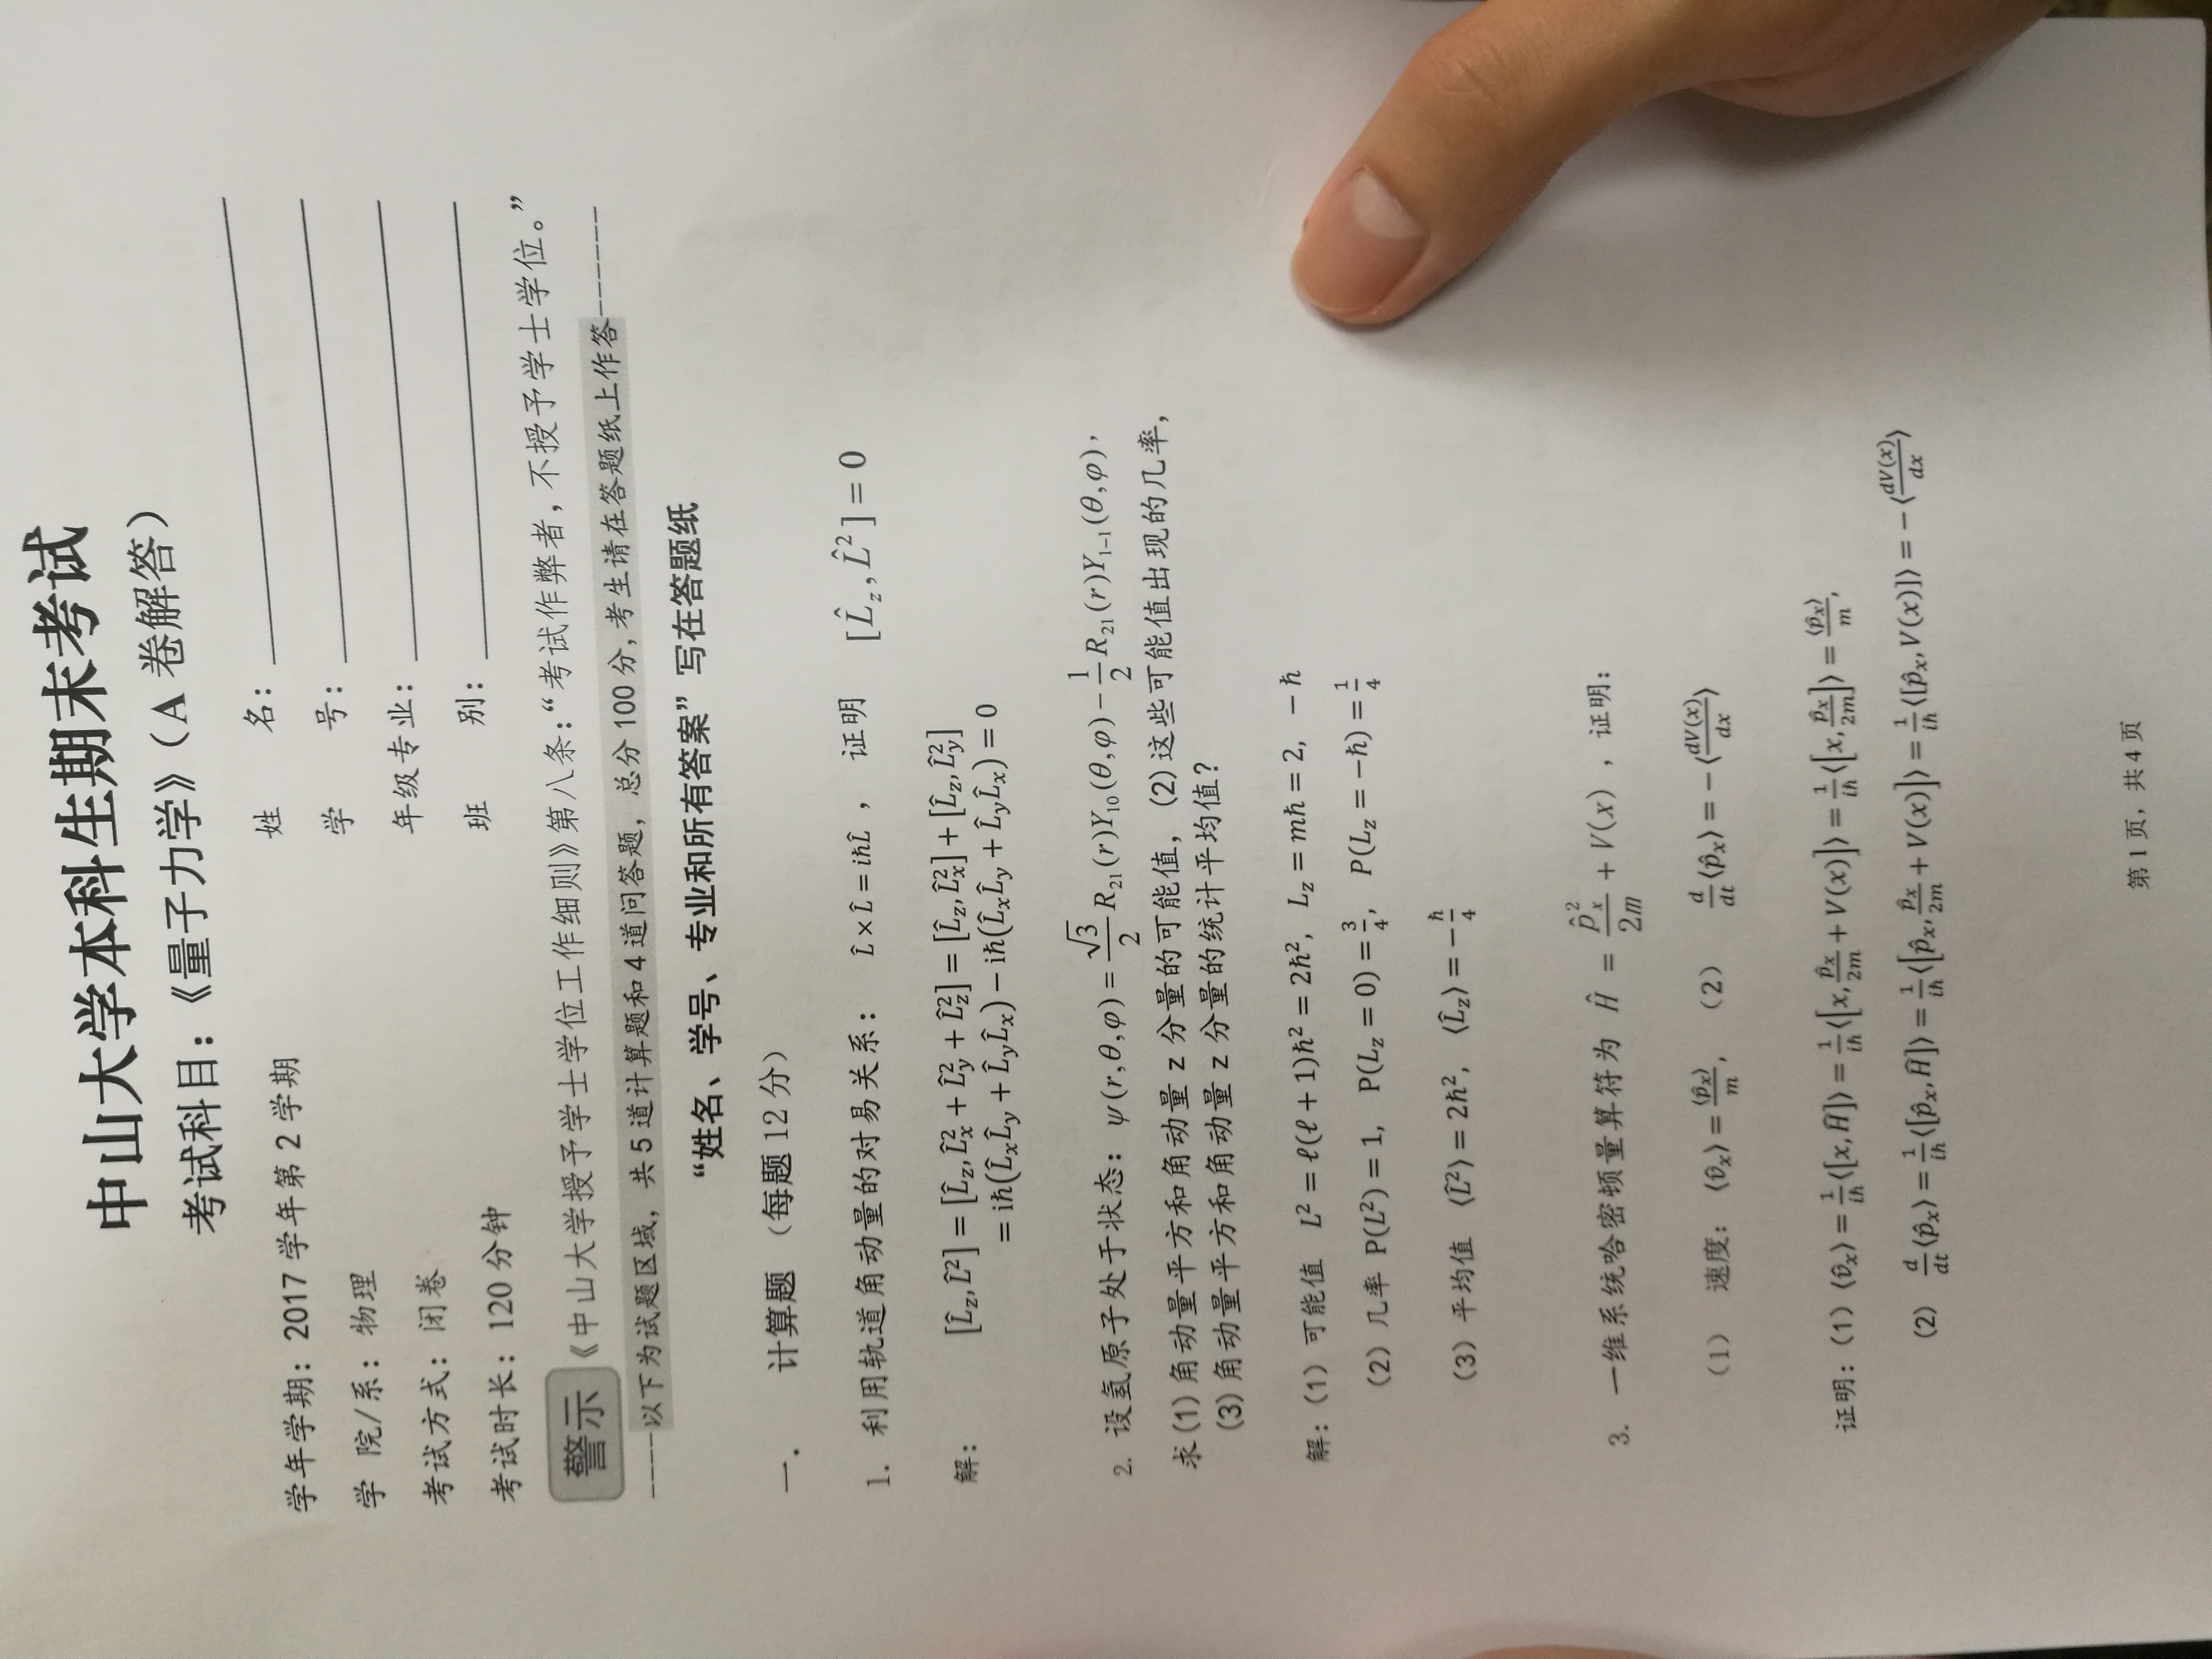 中山大学本科生期末考试
考试科目：《量子力学》（A 卷解答）
学年学期：2017 学年第 2 学期 姓 名：
学 院/系：物理 学 号：
考试方式：闭卷 年级专业：
考试时长：120 分钟 班 别：
警示 《中山大学授予学士学位工作细则》第八条：“考试作弊者，不授予学士学位。”
-----以下为试题区域，共 5 道计算题和 4 道问答题，总分 100 分,考生请在答题纸上作答--------
“姓名、学号、专业和所有答案” 写在答题纸
一. 计算题 （每题 12 分）
1. 利用轨道角动量的对易关系： L̂ × L̂ = iħL̂ ， 证明 [L̂_z, L̂²] = 0
解： [L̂_z, L̂²] = [L̂_z, L̂_x² + L̂_y² + L̂_z²] = [L̂_z, L̂_x²] + [L̂_z, L̂_y²]
= iħ(L̂_xL̂_y + L̂_yL̂_x) − iħ(L̂_xL̂_y + L̂_yL̂_x) = 0
2. 设氢原子处于状态： ψ(r,θ,φ) = √3/2 R₂₁(r)Y₁₀(θ,φ) − 1/2 R₂₁(r)Y₁₋₁(θ,φ),
求(1)角动量平方和角动量 z 分量的可能值，(2)这些可能值出现的几率，
(3)角动量平方和角动量 z 分量的统计平均值？
解：（1）可能值 L² = ℓ(ℓ + 1)ħ² = 2ħ², L_z = mħ = 2, −ħ
（2）几率 P(L²) = 1, P(L_z = 0) = 3/4, P(L_z = −ħ) = 1/4
（3）平均值 ⟨L̂²⟩ = 2ħ², ⟨L̂_z⟩ = −ħ/4
3. 一维系统哈密顿量算符为 Ĥ = p̂_x²/2m + V(x) ，证明：
（1） 速度： ⟨v̂_x⟩ = ⟨p̂_x⟩/m, （2） d/dt⟨p̂_x⟩ = −⟨dV(x)/dx⟩
证明：（1）⟨v̂_x⟩ = 1/iħ⟨[x, Ĥ]⟩ = 1/iħ⟨[x, p̂_x/2m + V(x)]⟩ = 1/iħ⟨[x, p̂_x/2m]⟩ = ⟨p̂_x⟩/m,
（2） d/dt⟨p̂_x⟩ = 1/iħ⟨[p̂_x, Ĥ]⟩ = 1/iħ⟨[p̂_x, p̂_x/2m + V(x)]⟩ = 1/iħ⟨[p̂_x, V(x)]⟩ = −⟨dV(x)/dx⟩
第 1 页，共 4 页